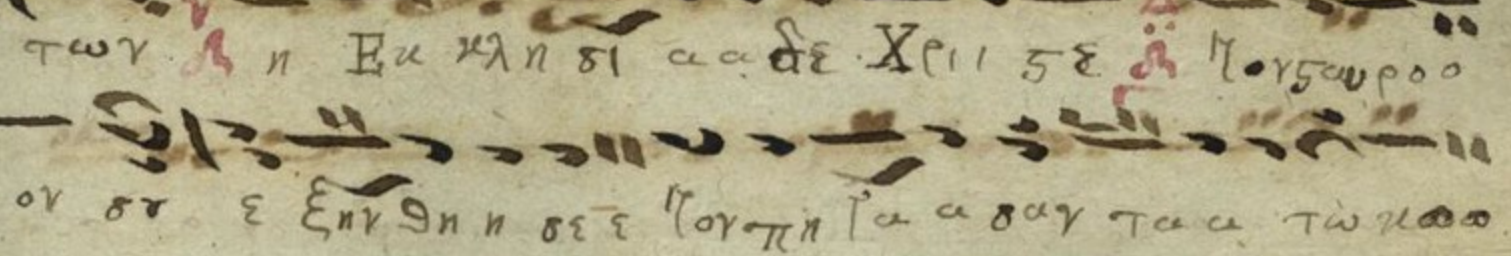 των η Εκ κλη σι α α δε Χρι ι ϛε τον ϛαυρο ο
ον σου ε ξην θη η σε ε τον πη γα α σαν τα α τω κοο